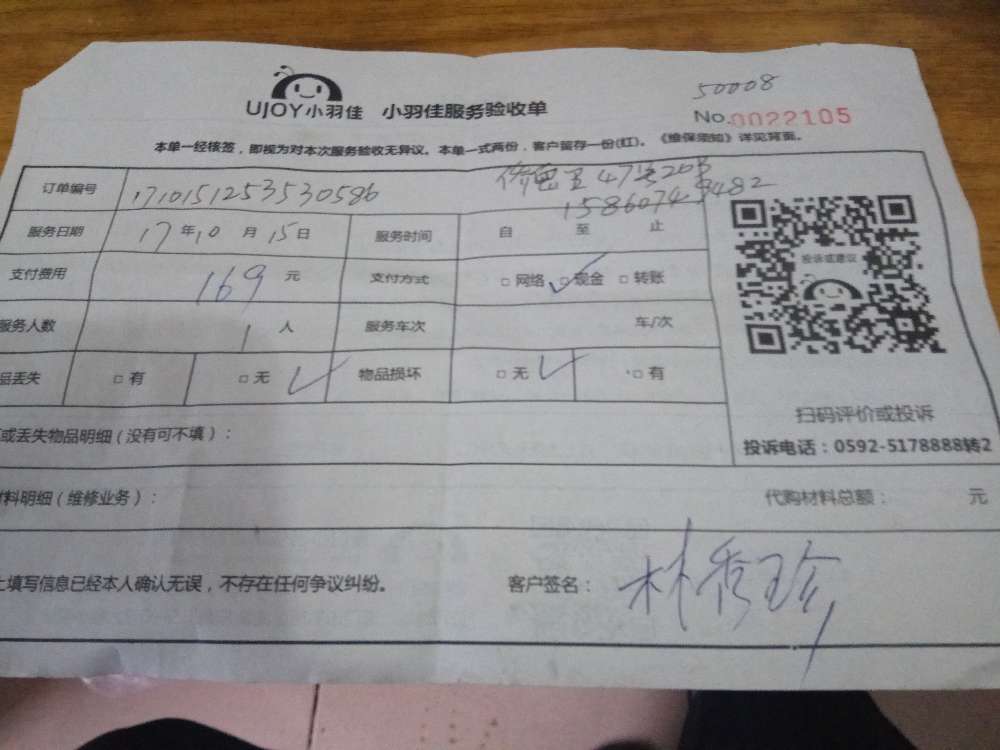 50008
UJOY小羽佳 小羽佳服务验收单
No.0022105
本单一经核签，即视为对本次服务验收无异议。本单一式两份，客户留存一份(红)。《维保须知》详见背面。
订单编号 1710151253530586 47号203
15860743482
服务日期 17年10月15日 服务时间 自 至 止
支付费用 169元 支付方式 □网络 □现金 □转账
服务人数 1人 服务车次 车/次
品丢失 □有 □无 物品损坏 □无 □有
投诉或建议
扫码评价或投诉
投诉电话：0592-5178888转2
或丢失物品明细（没有可不填）：
材料明细（维修业务）： 代购材料总额： 元
上填写信息已经本人确认无误，不存在任何争议纠纷。 客户签名：林秀珍